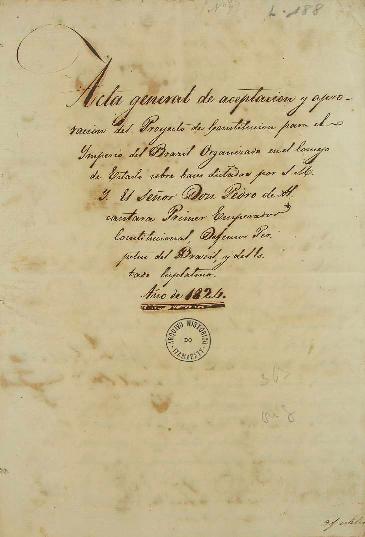 L-188
Acta general de aceptacion y apro-
vacion del Proyecto de Constitucion para el
Imperio del Brazil Organizado en el Consejo
de Estado sobre bases dictadas por S. M.
I. El Señor Don Pedro de Al
cantara Primer Emperador
Constitucional, Defensor Per
petuo del Brazil, y del Es
tado Cisplatino.
Año de 1824.
ARQUIVO HISTÓRICO
DO
ITAMARATY